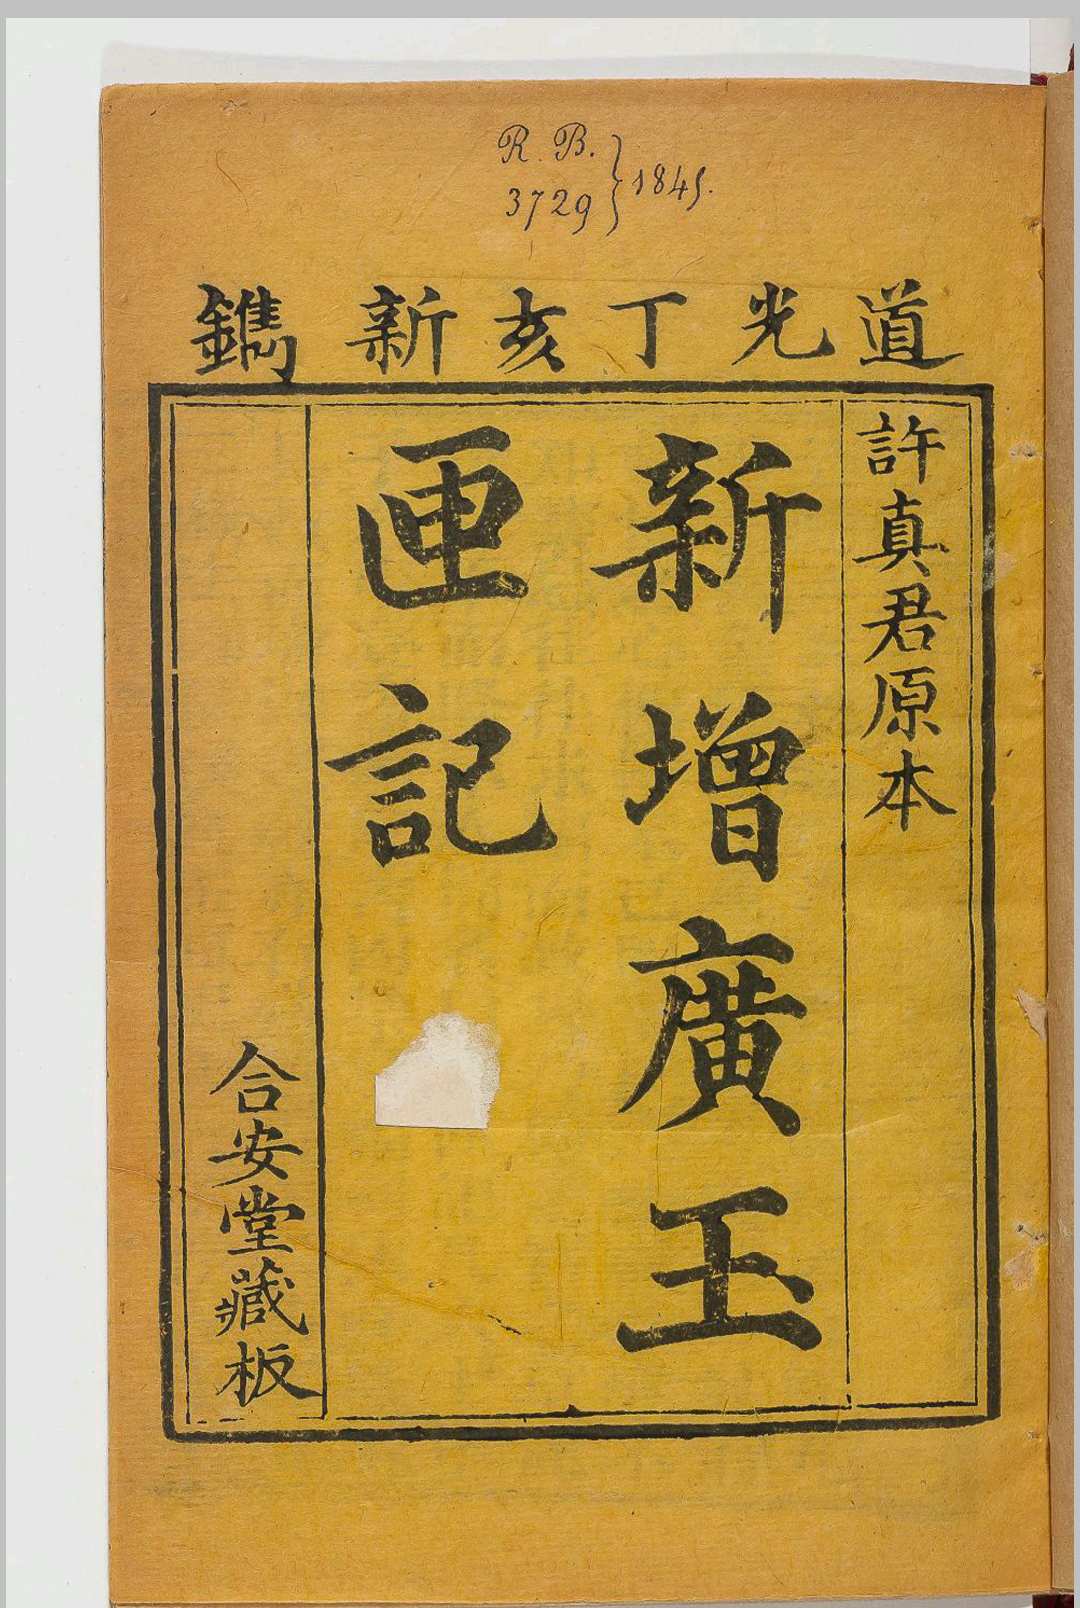 R. B.
3729
1845.
道光丁亥新鐫
許真君原本
新增廣玉
匣記
合安堂藏板